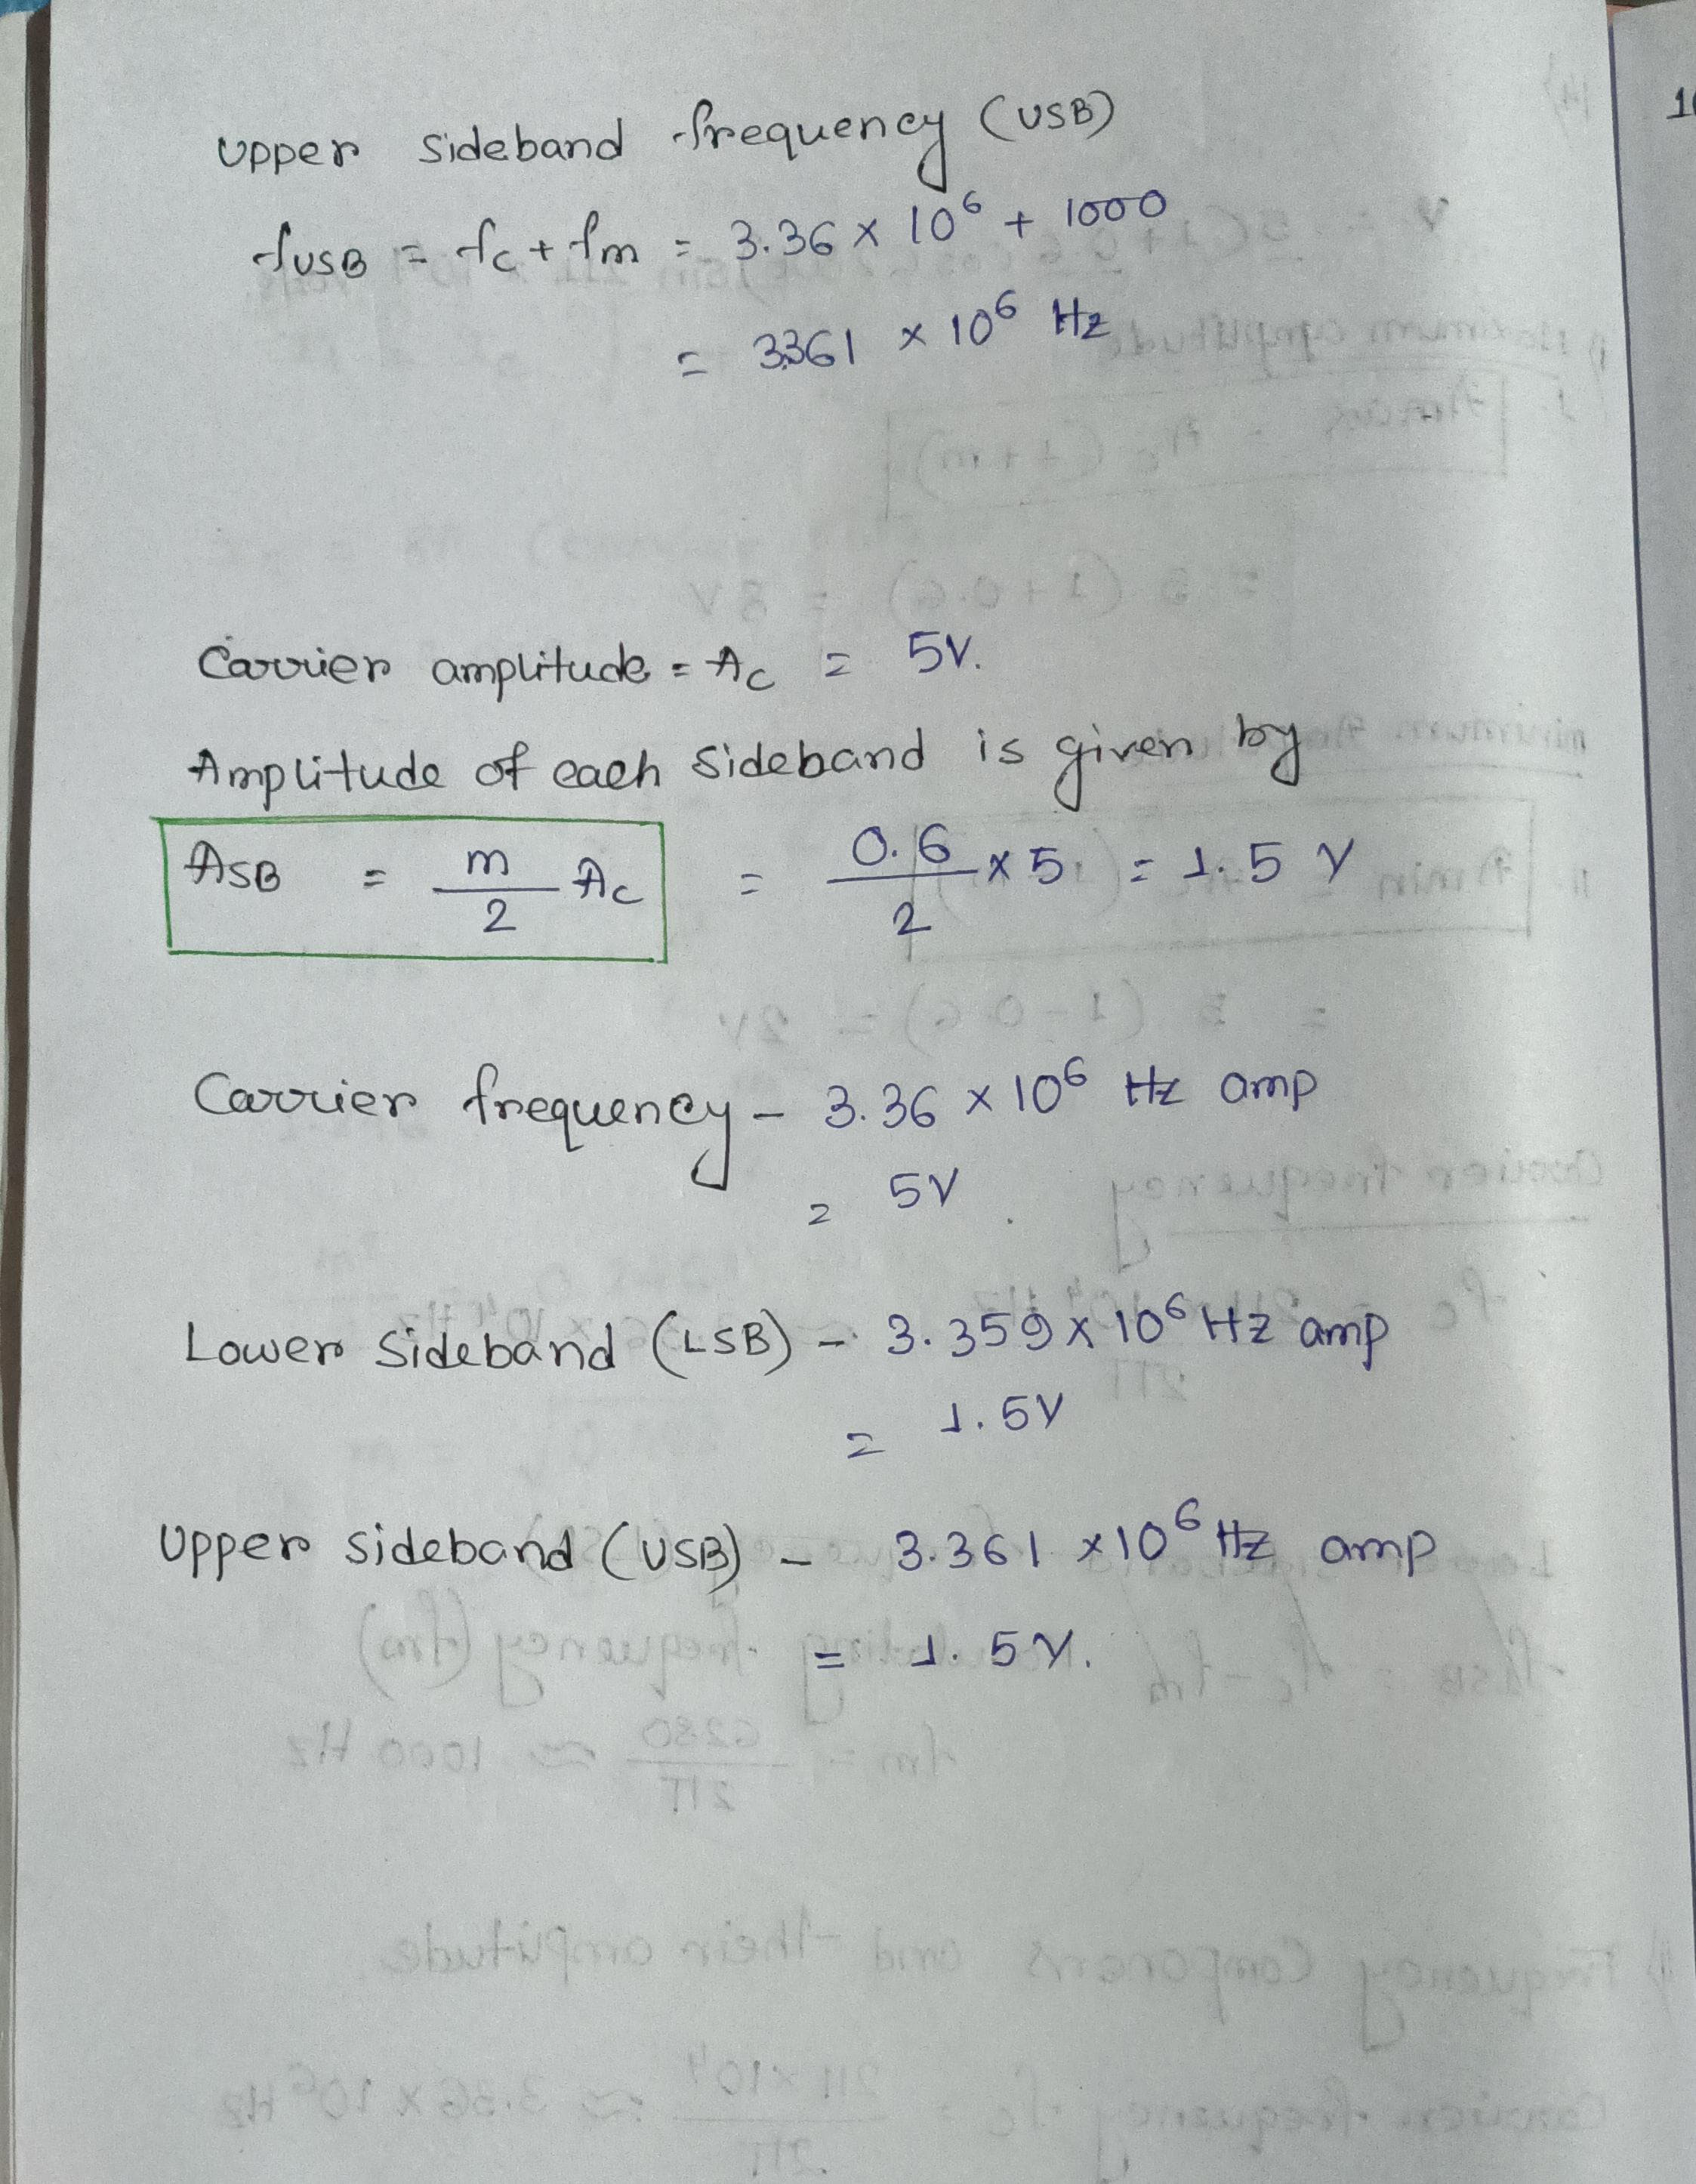 Upper sideband frequency (USB)
fUSB = fc + fm = 3.36 × 10⁶ + 1000
= 3.361 × 10⁶ Hz
Carrier amplitude = Ac = 5V.
Amplitude of each sideband is given by
ASB = m/2 Ac = 0.6/2 × 5 = 1.5 V
Carrier frequency - 3.36 × 10⁶ Hz amp
= 5V
Lower sideband (LSB) - 3.359 × 10⁶ Hz amp
= 1.5V
Upper sideband (USB) - 3.361 × 10⁶ Hz amp
= 1.5V.